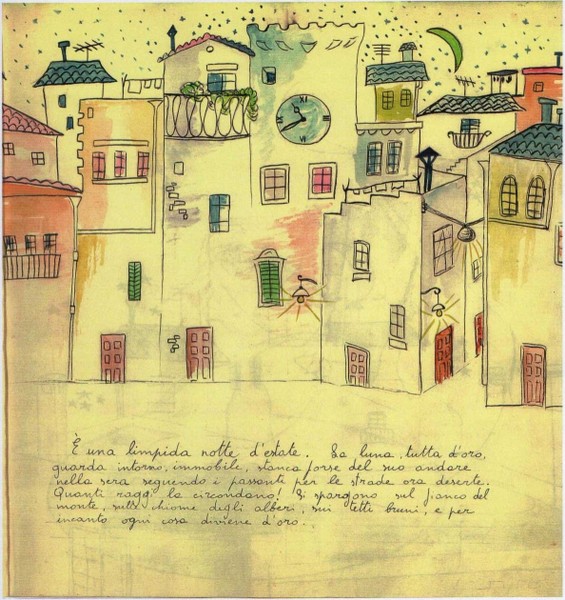 XI
III
VI
È una limpida notte d'estate. La luna, tutta d'oro,
guarda intorno, immobile, stanca forse del suo andare
nella sera seguendo i passanti per le strade ora deserte.
Quanti raggi la circondano! Si spargono sul fianco del
monte, sulle chiome degli alberi, sui tetti bruni, e per
incanto ogni cosa diviene d'oro.